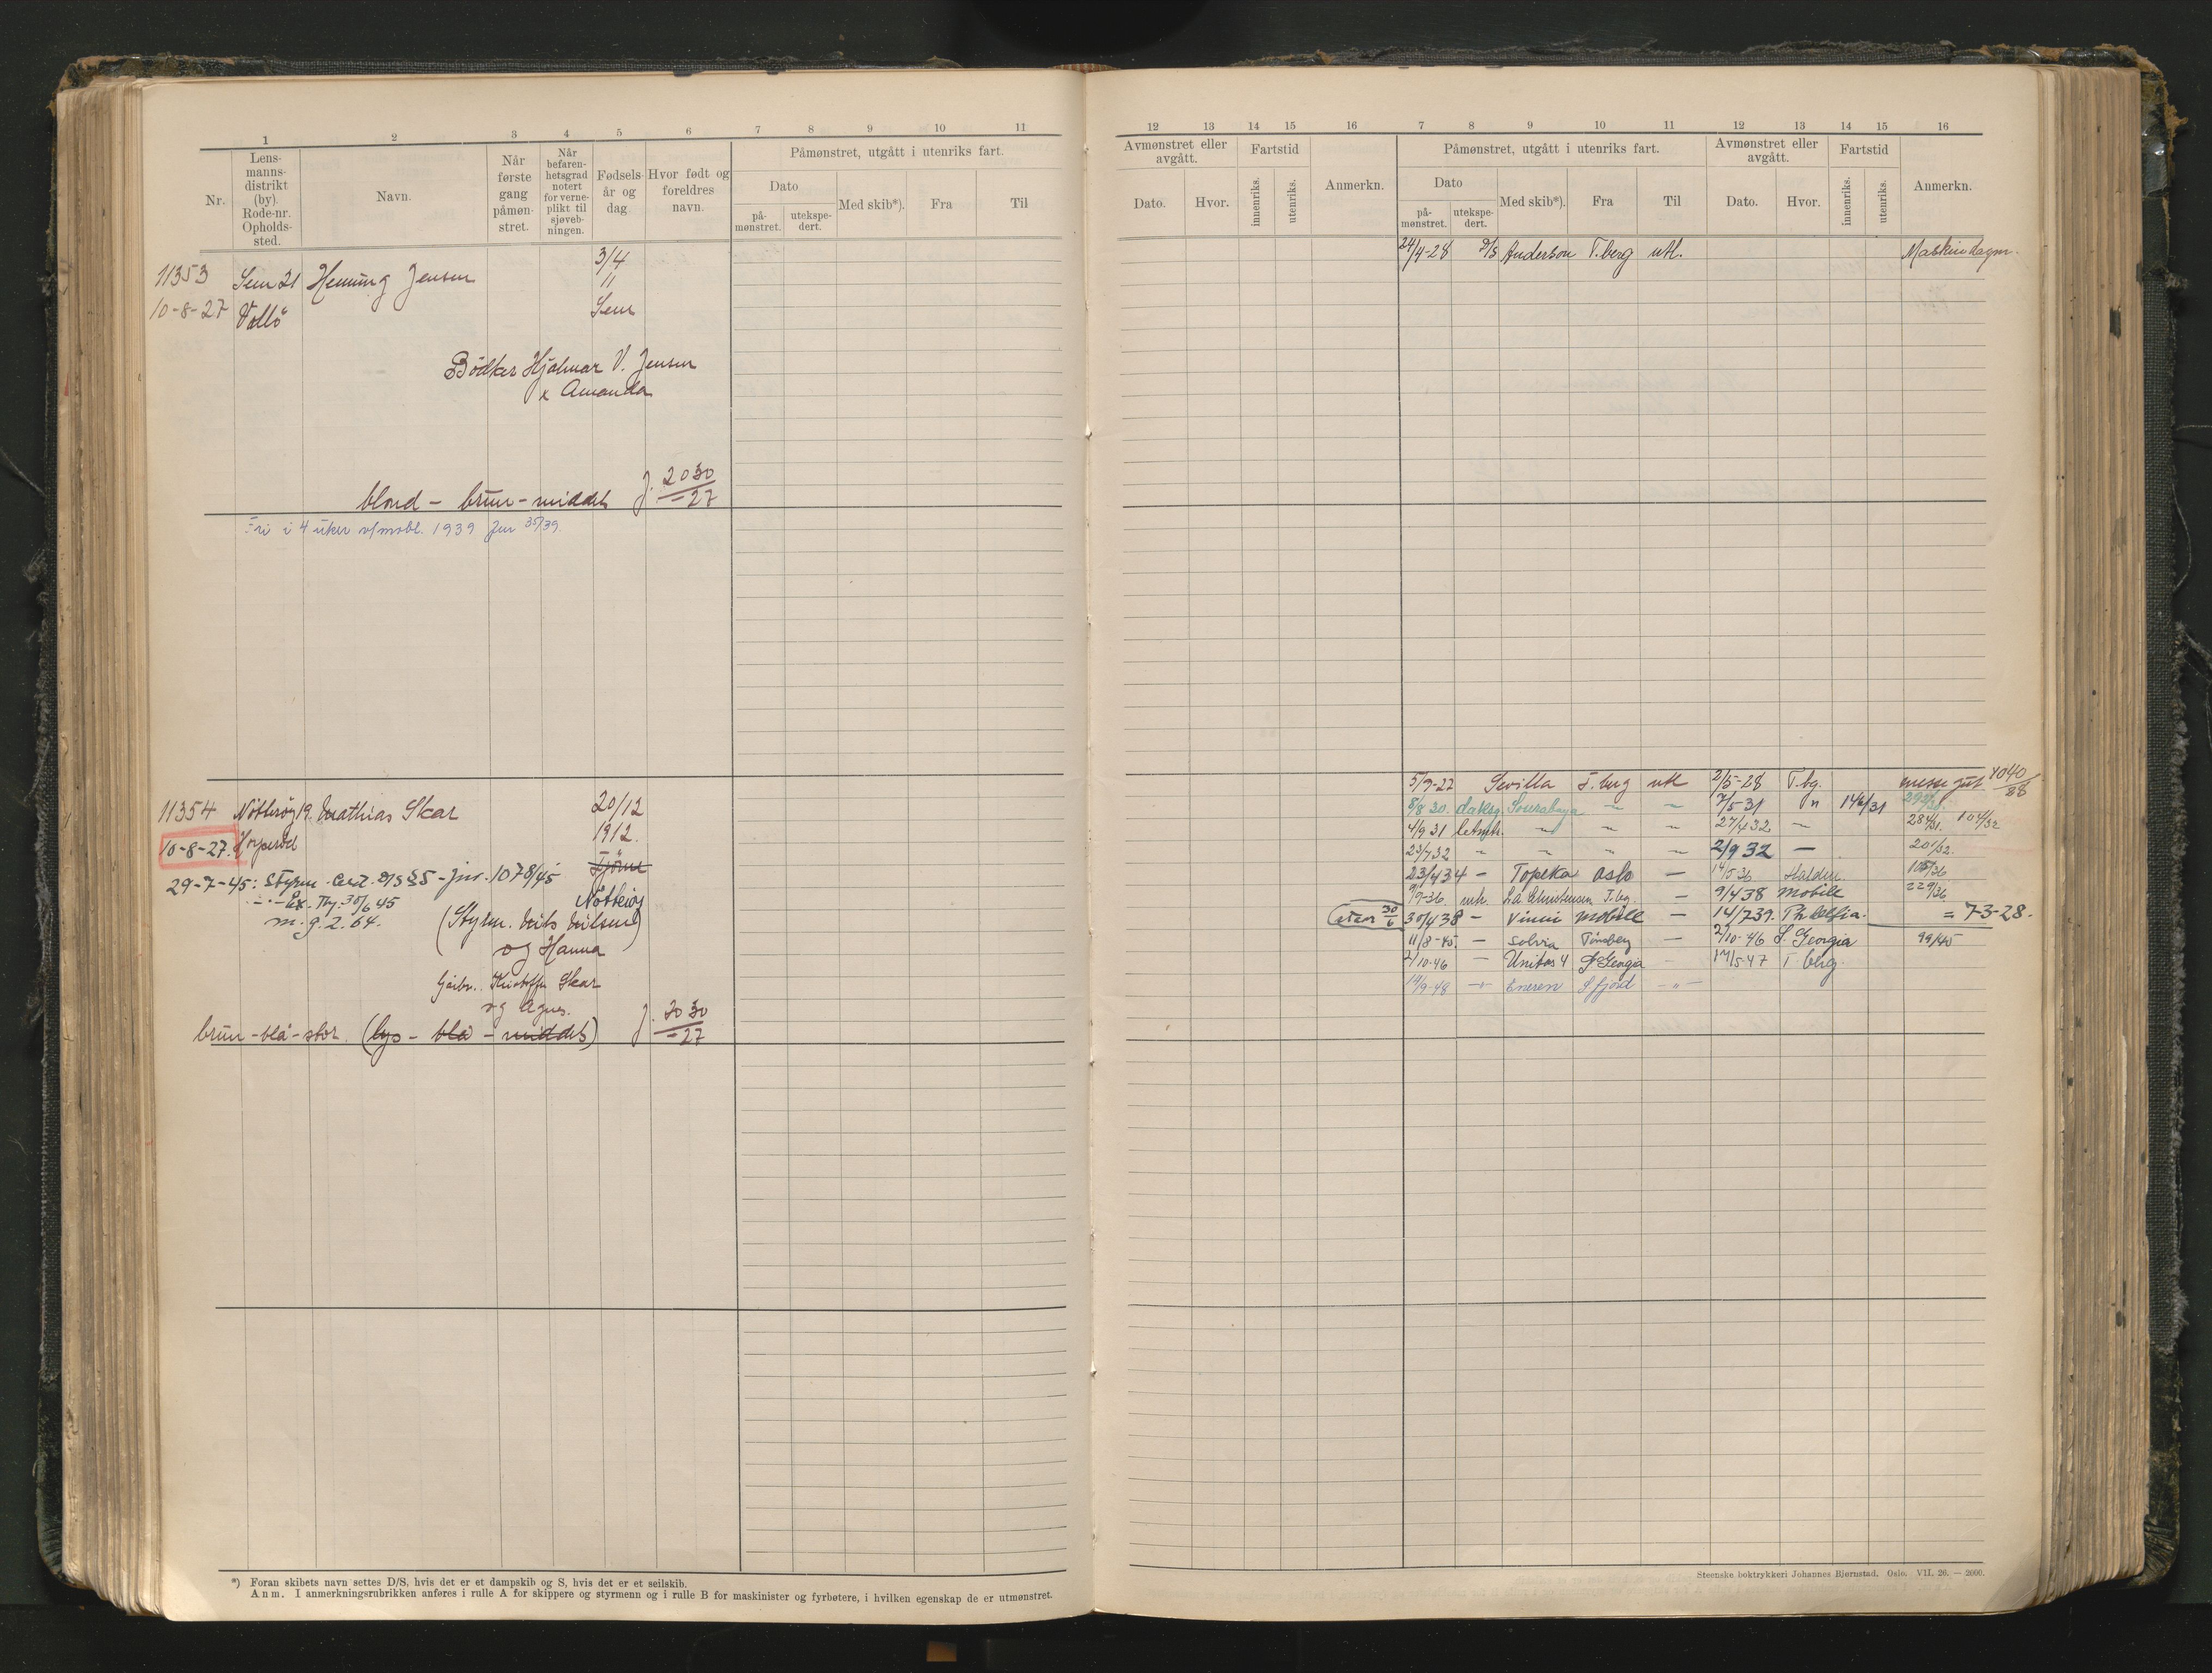 1 2 3 4 5 6 7 8 9 10 11
Nr.
Lens-
manns-
distrikt
(by).
Rode-nr.
Opholds-
sted.
Navn.
Når
første
gang
påmøn-
stret.
Når
befaren-
hetsgrad
notert
for verne-
plikt til
sjøveb-
ningen.
Fødsels-
år og
dag.
Hvor født og
foreldres
navn.
Påmønstret, utgått i utenriks fart.
Dato
på-
mønstret.
utekspe-
dert.
Med skib*).
Fra
Til
11353 Sem 21 Henning Jensen 3/4
11
10-8-27 Vallö Sem
Bödker Hjalmar V. Jensen
x Amanda
blond - brun - middels J. 2030/-27
Fri i 4 uker v/mobl. 1939
11354 Nötteröy 19. Mathias Skar 20/12
1912.
10-8-27.
Tjöme
29-7-45: Styrm. Cert. D/S § 5 - Jnr. 1078/45
Nötteröy
m. g. 2. 64.
(Styrm. Nils Nilsen)
og Hanna
Skar
og Agnes.
brun - blå - stor. (lys - blå - middels) J. 2030/-27
*) Foran skibets navn settes D/S, hvis det er et dampskib og S, hvis det er et seilskib.
Anm. I anmerkningsrubrikken anføres i rulle A for skippere og styrmenn og i rulle B for maskinister og fyrbøtere, i hvilken egenskap de er utmønstret.
12 13 14 15 16 7 8 9 10 11 12 13 14 15 16
Avmønstret eller
avgått.
Dato.
Hvor.
Fartstid
innenriks.
utenriks.
Anmerkn.
Påmønstret, utgått i utenriks fart.
Dato
på-
mønstret.
utekspe-
dert.
Med skib*).
Fra
Til
Avmønstret eller
avgått.
Dato.
Hvor.
Fartstid
innenriks.
utenriks.
Anmerkn.
24/4-28 D/S Anderson T.berg utl.
Sevilla T.berg utl 2/5-28 T.bg. messegut 4040/28
8/8 30. Soerabaya 7/5-31 " 146/31
4/9 31 27/4 32 284/31. 104/32
23/7 32 2/9 32 - 201/32.
23/4 34 - Topeka Oslo - 14/5 36 Halden
L.A. Christensen T.bg. - 9/4 38 Mobile 229/36
30/4 38 - Vinni Mobile - 14/7 39. = 7-3-28.
11/8-45. - Solvia Tönsberg - 2/10-46 S. Georgia 99/45
2/10-46 - Unitas 4 S. Georgia - 17/5-47 T. berg
14/9-48 Eneren S. fjord - " -
Steenske boktrykkeri Johannes Bjørnstad. Oslo. VII. 26. — 2000.